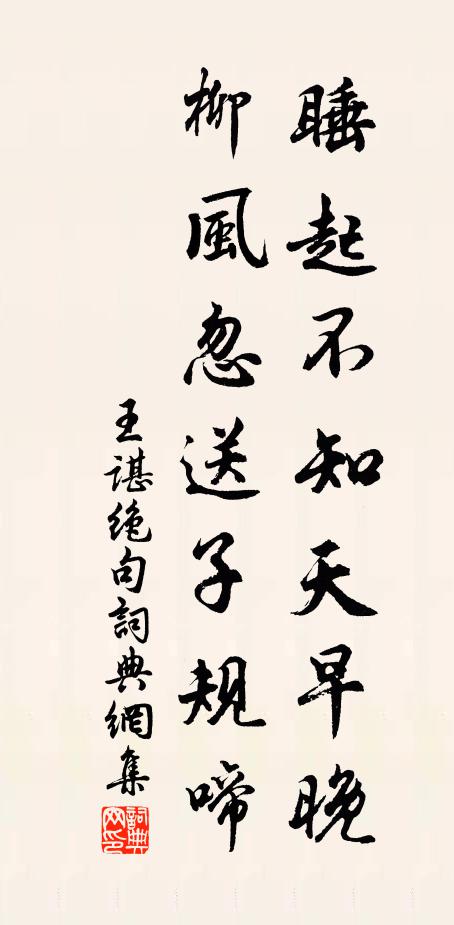 睡起不知天早晚
柳風忽送子規啼
王諶絶句詞典網集
詞典网印